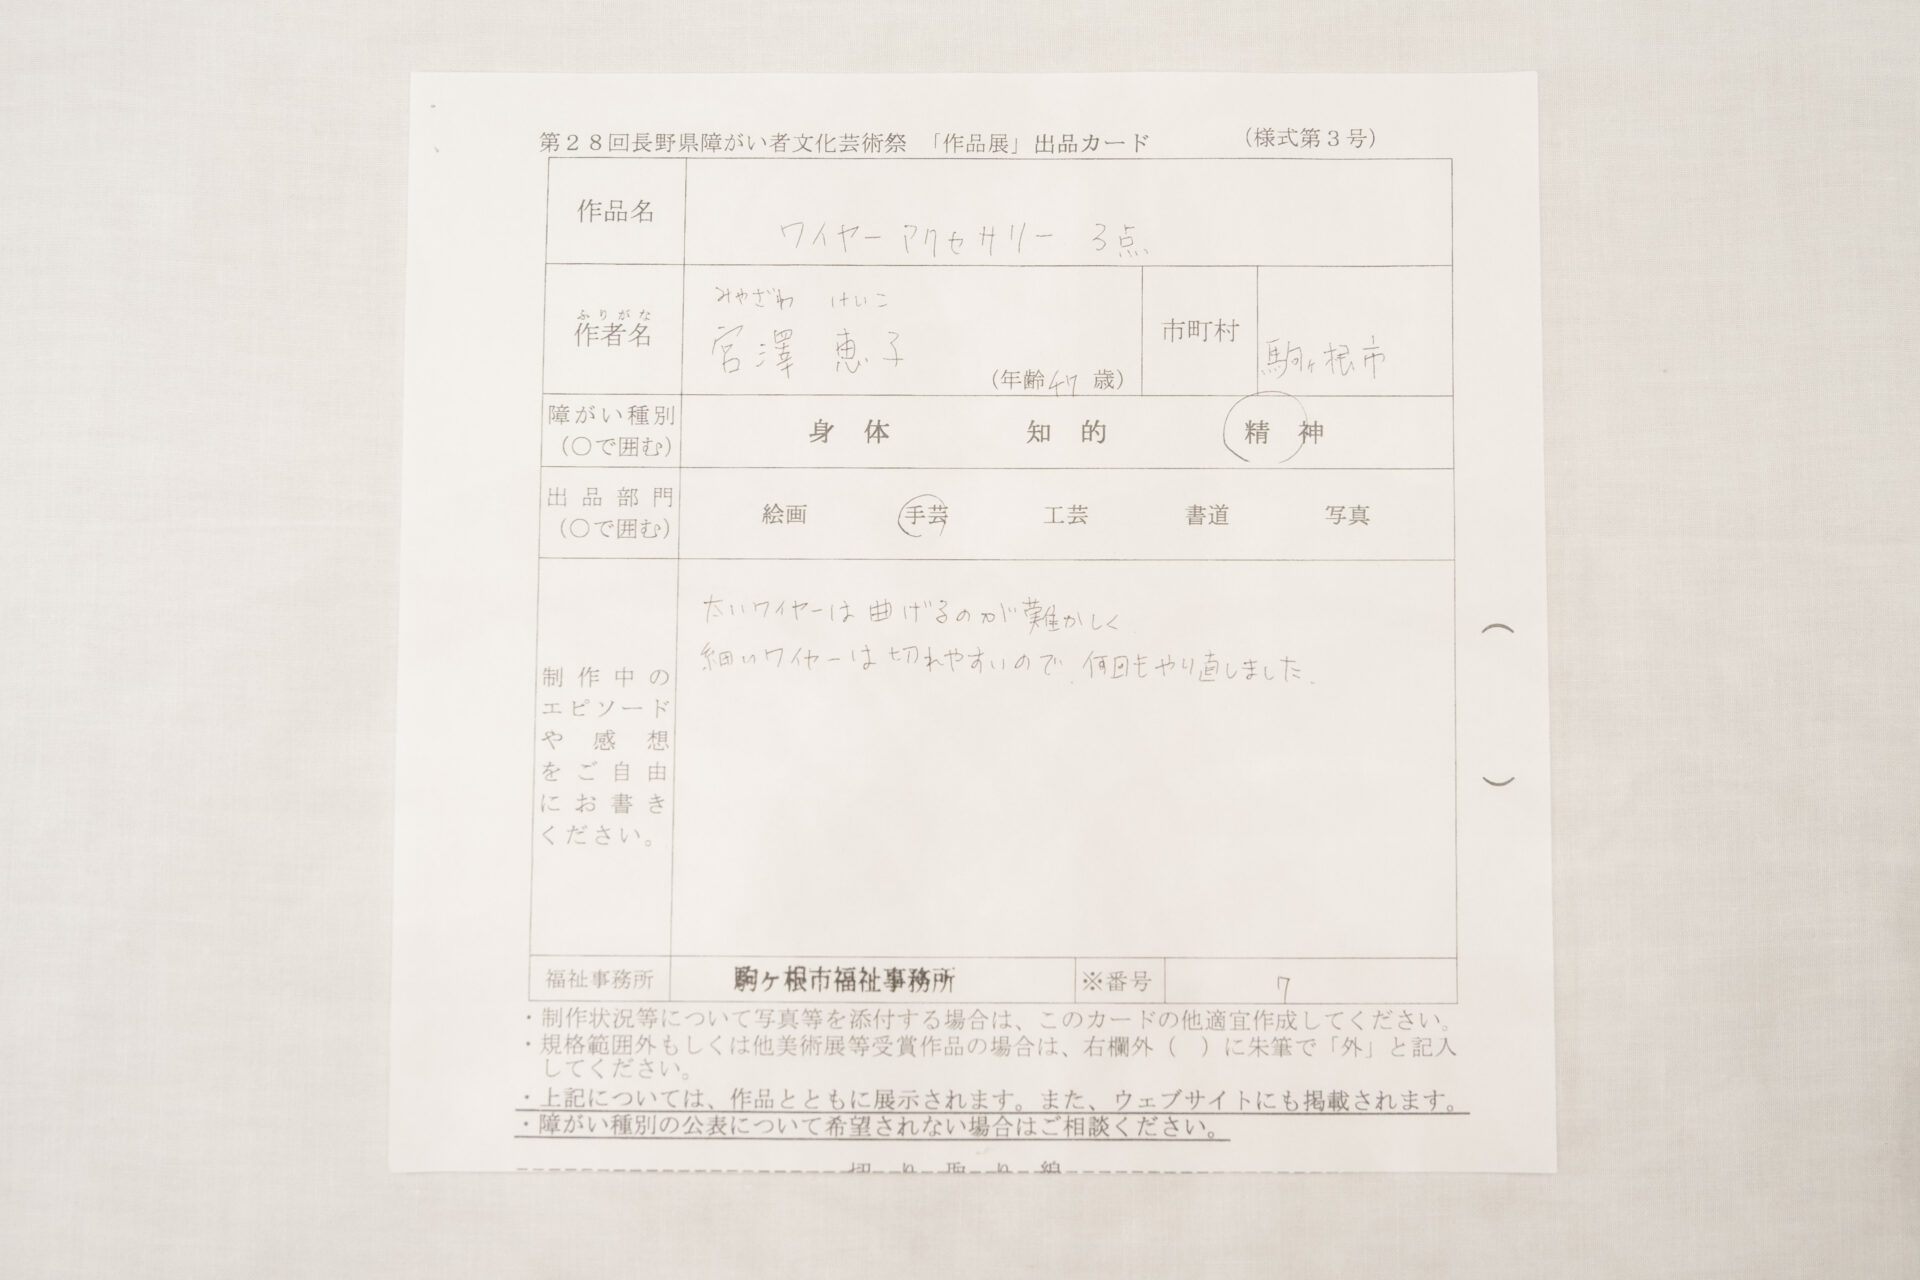 第２８回長野県障がい者文化芸術祭 「作品展」出品カード （様式第３号）
作品名 ワイヤーアクセサリー 3点
ふりがな みやざわ けいこ
作者名 宮澤 恵子 （年齢47歳） 市町村 駒ヶ根市
障がい種別（〇で囲む） 身体 知的 精神
出品部門（〇で囲む） 絵画 手芸 工芸 書道 写真
制作中の
エピソード
や感想
をご自由
にお書き
ください。
太いワイヤーは曲げるのが難かしく
細いワイヤーは切れやすいので、何回もやり直しました。
（ ）
福祉事務所 駒ヶ根市福祉事務所 ※番号 7
・制作状況等について写真等を添付する場合は、このカードの他適宜作成してください。
・規格範囲外もしくは他美術展等受賞作品の場合は、右欄外（ ）に朱筆で「外」と記入
してください。
・上記については、作品とともに展示されます。また、ウェブサイトにも掲載されます。
・障がい種別の公表について希望されない場合はご相談ください。
切り取り線